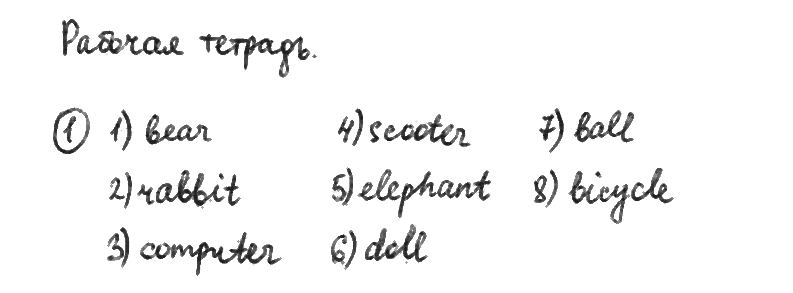 Рабочая тетрадь.
① 1) bear 4) scooter 7) ball
2) rabbit 5) elephant 8) bicycle
3) computer 6) doll